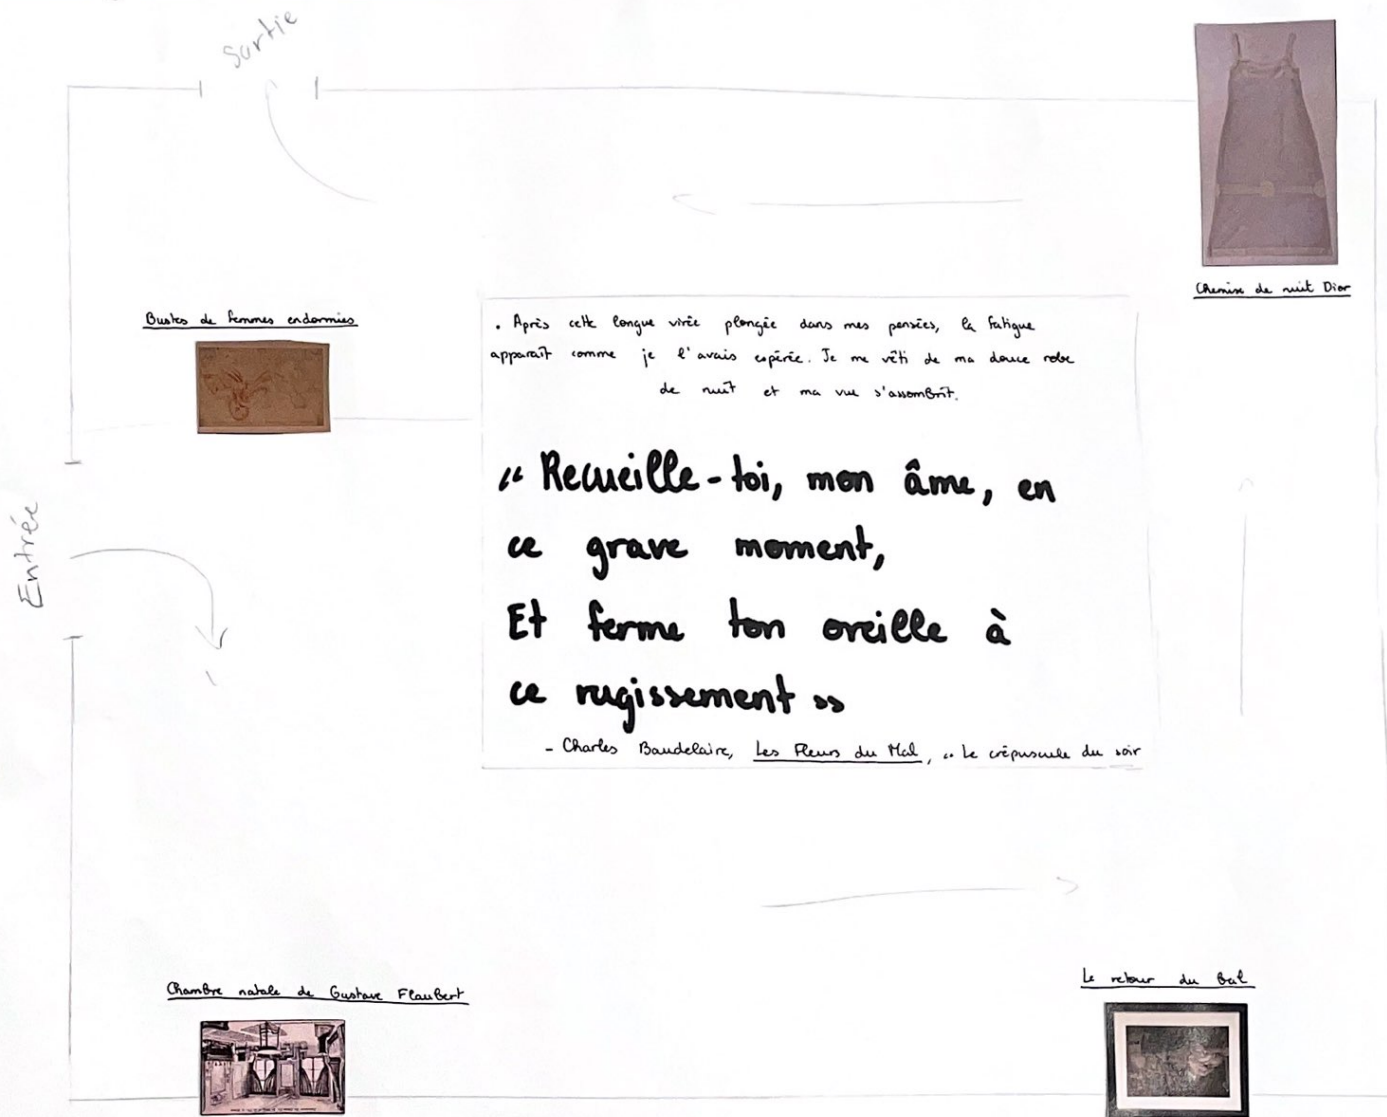 Sortie
Chemise de nuit Dior
Bustes de femmes endormies
. Après cette longue virée plongée dans mes pensées, la fatigue
apparaît comme je l'avais espérée. Je me vêti de ma douce robe
de nuit et ma vue s'assombrit.
" Recueille-toi, mon âme, en
ce grave moment,
Et ferme ton oreille à
ce rugissement »
- Charles Baudelaire, Les Fleurs du Mal, " Le crépuscule du soir
Entrée
Chambre natale de Gustave Flaubert
Le retour du bal